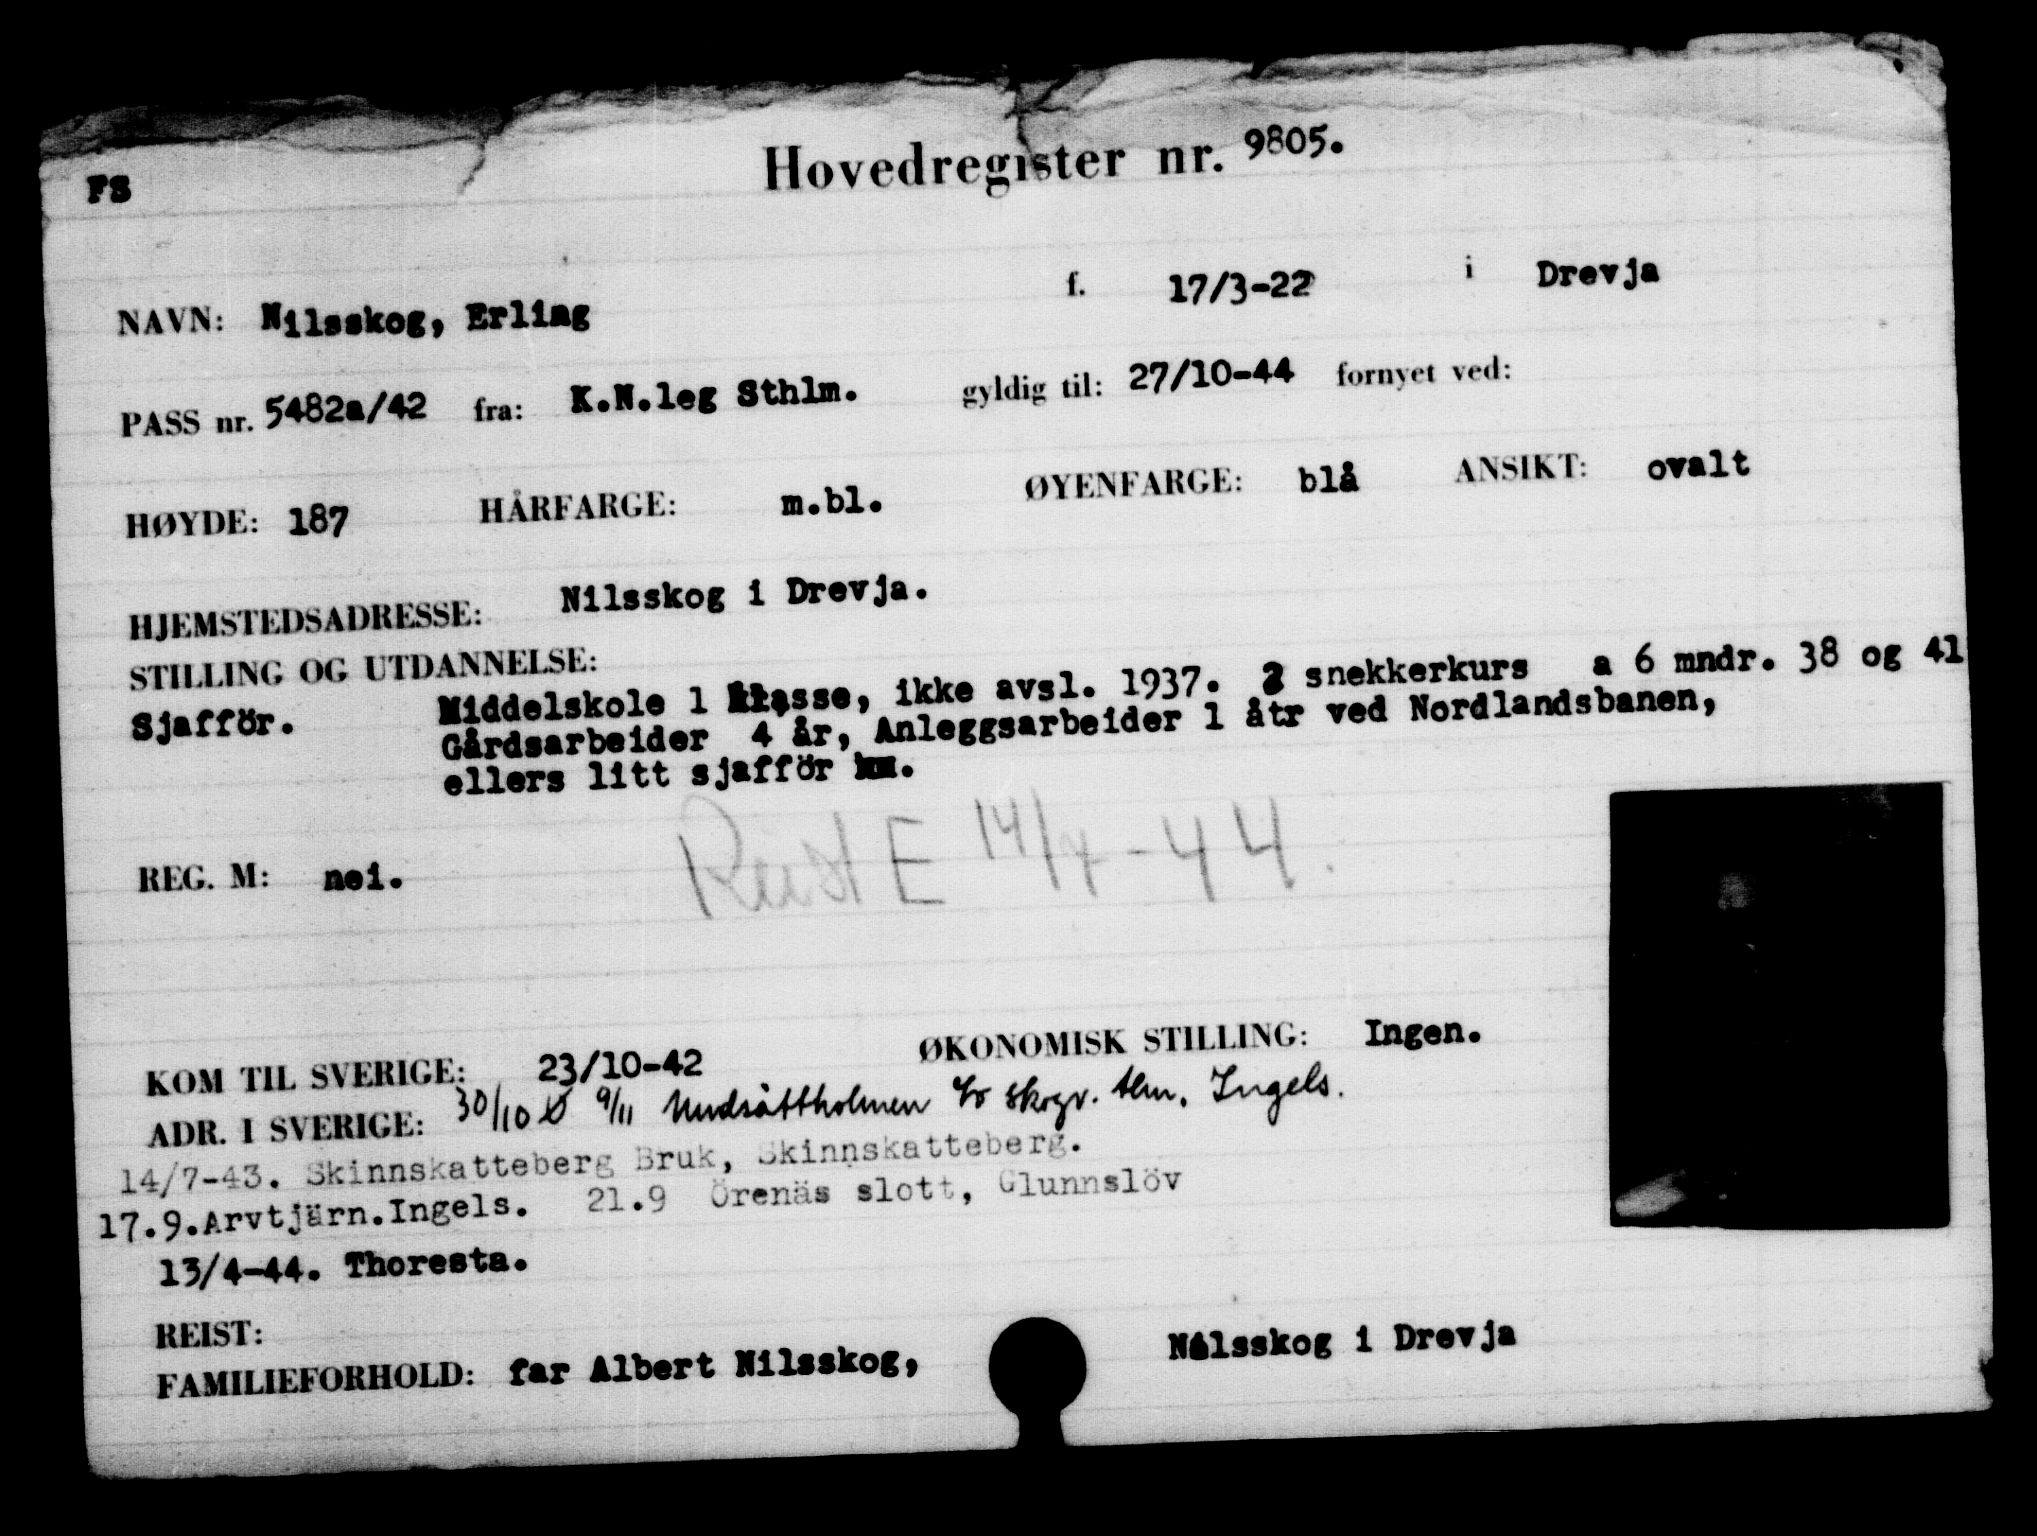 FS
Hovedregister nr. 9805.
NAVN: Nilsskog, Erling f. 17/3-22 i Drevja
PASS nr. 5482a/42 fra: K.N.leg Sthlm. gyldig til: 27/10-44 fornyet ved:
HØYDE: 187 HÅRFARGE: m.bl. ØYENFARGE: blå ANSIKT: ovalt
HJEMSTEDSADRESSE: Nilsskog i Drevja.
STILLING OG UTDANNELSE:
Sjafför. Middelskole 1 klasse, ikke avsl. 1937. 2 snekkerkurs a 6 mndr. 38 og 41
Gårdsarbeider 4 år, Anleggsarbeider 1 åtr ved Nordlandsbanen,
ellers litt sjafför
Reist E 14/4-44.
REG. M: nei.
KOM TIL SVERIGE: 23/10-42 ØKONOMISK STILLING: Ingen.
ADR. I SVERIGE: 30/10 9/11 Skogv. Ingels.
14/7-43. Skinnskatteberg Bruk, Skinnskatteberg.
17.9.Arvtjärn.Ingels. 21.9 Örenäs slott, Glunnslöv
13/4-44. Thoresta.
REIST:
FAMILIEFORHOLD: far Albert Nilsskog, Nilsskog i Drevja